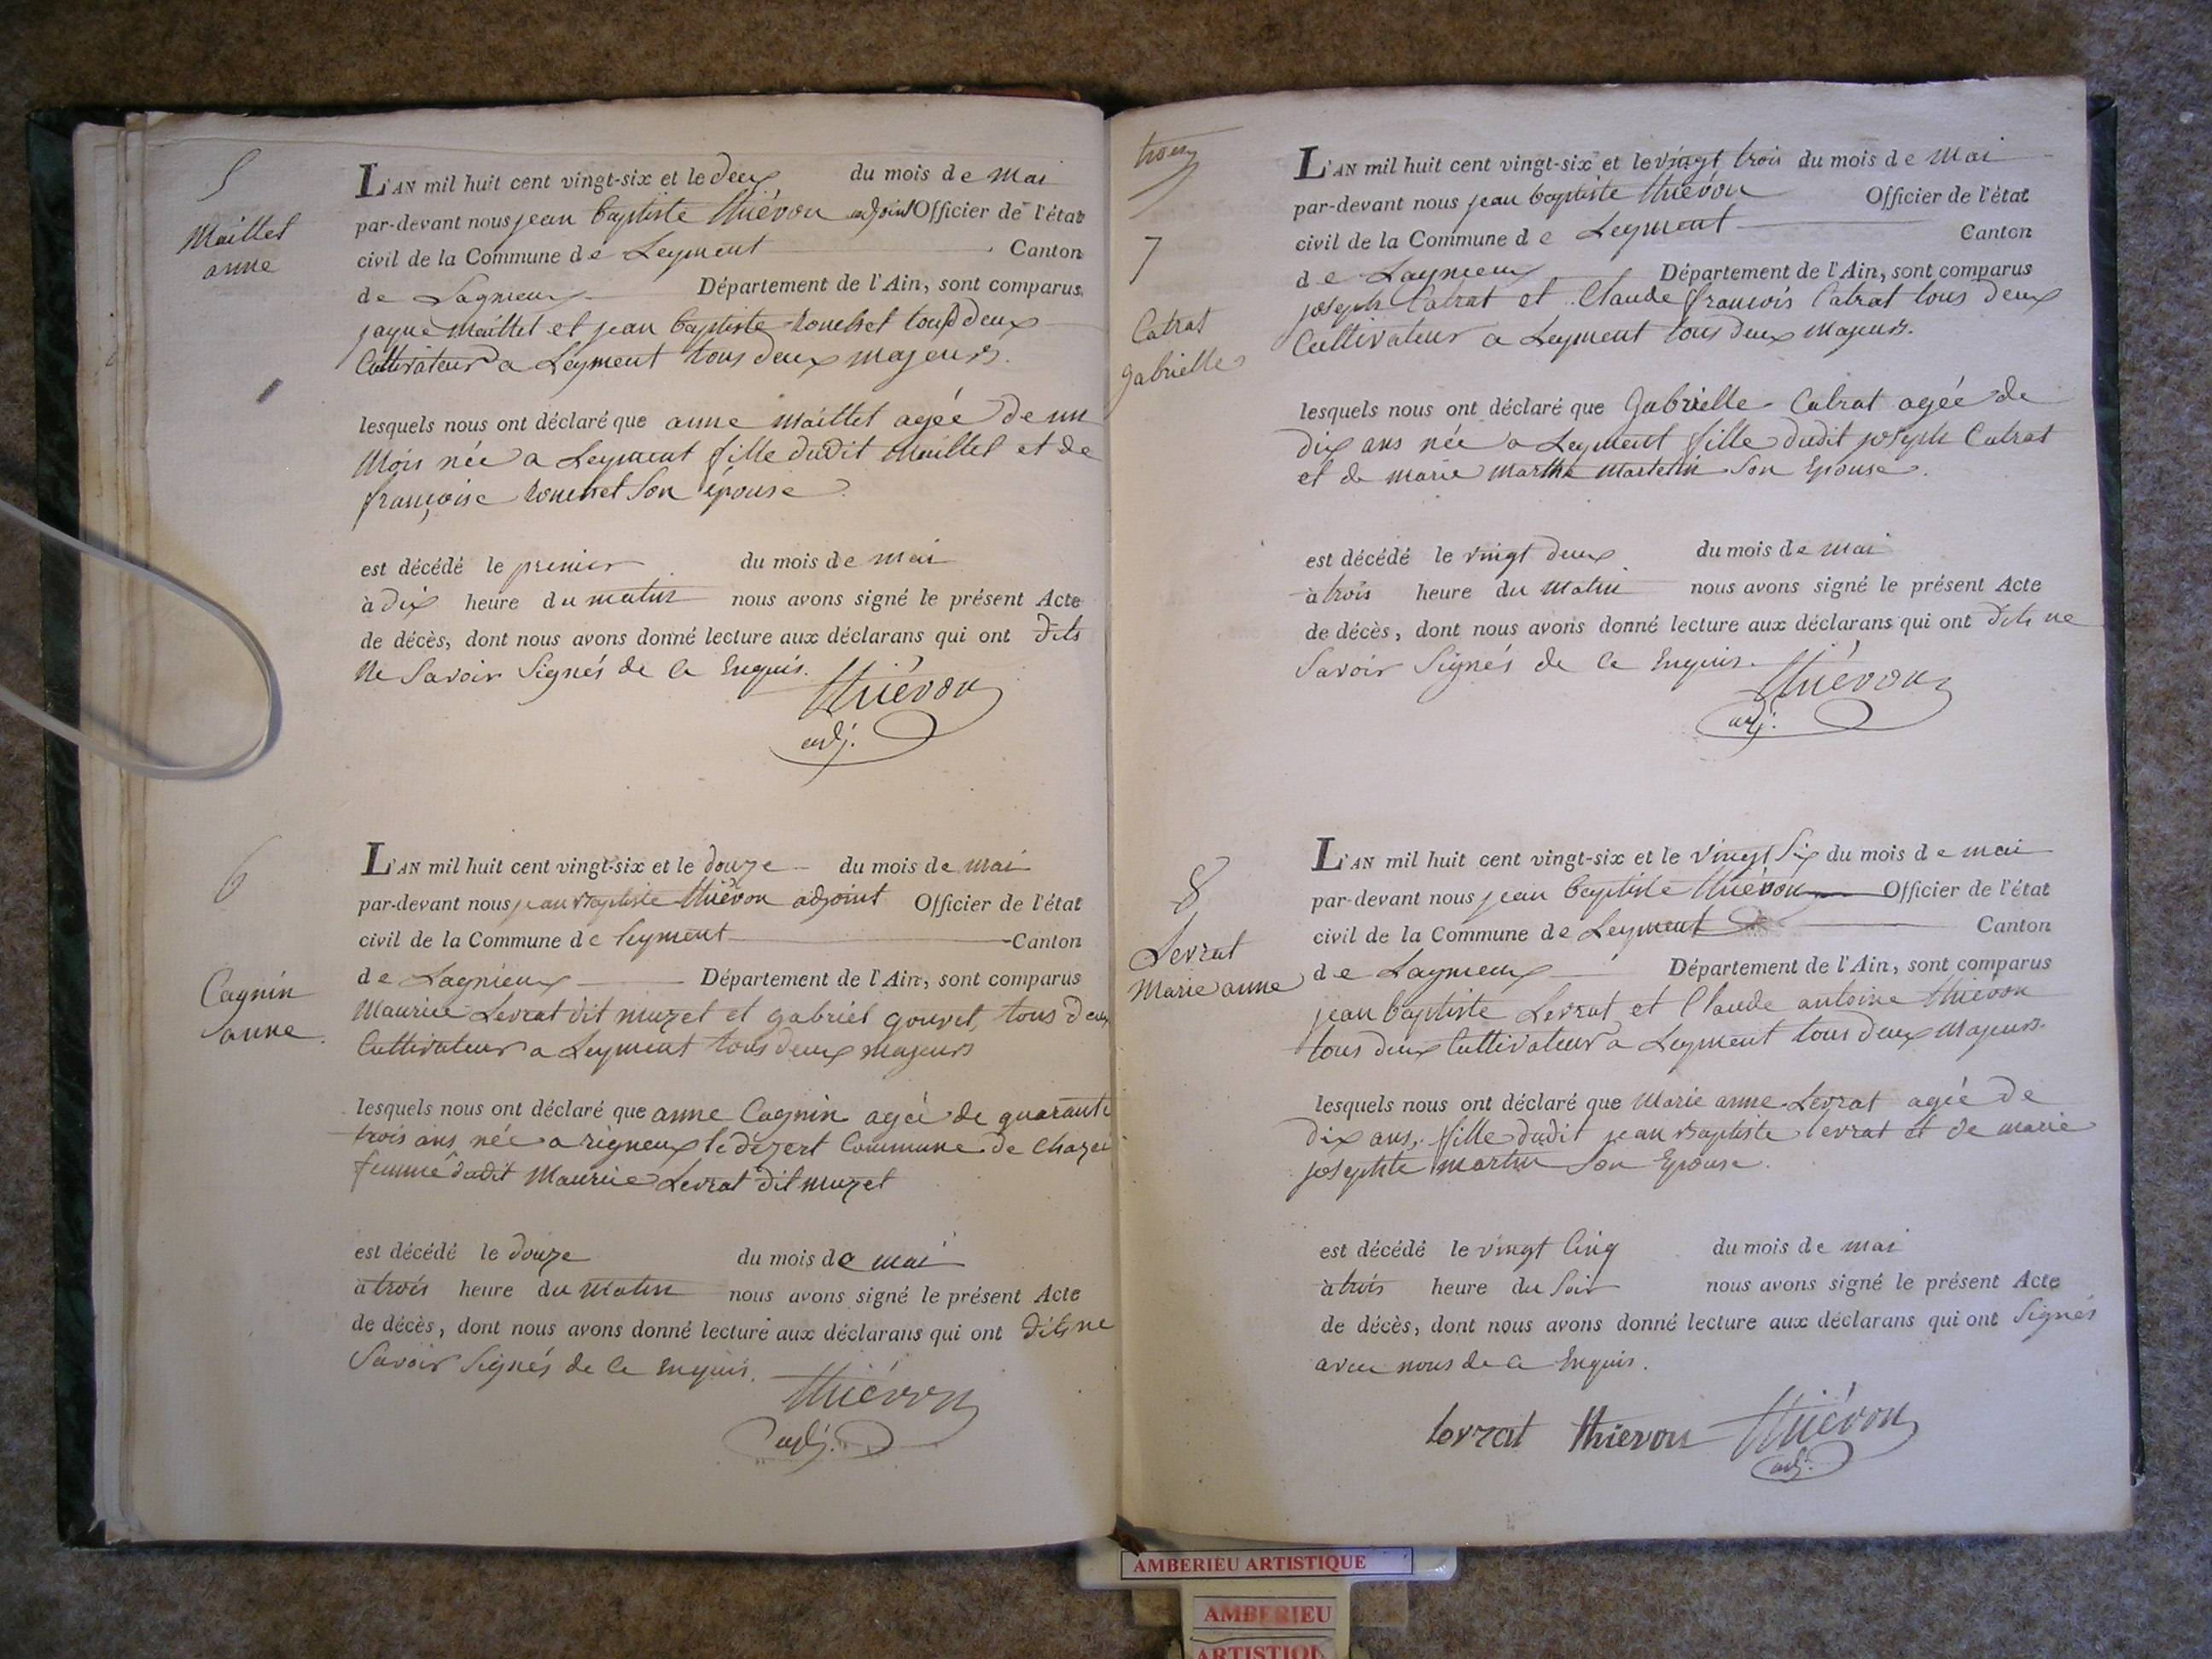 5
Maillet
anne
L'AN mil huit cent vingt-six et le deux du mois de Mai
par-devant nous jean baptiste thiévon adjoint Officier de l'état
civil de la Commune de Leyment Canton
de Lagnieux Département de l'Ain, sont comparus
jaque Maillet et jean baptiste rouchet tous deux
Cultivateur a Leyment tous deux majeurs.
lesquels nous ont déclaré que anne Maillet agée de un
Mois née a Leyment fille dudit Maillet et de
françoise rouchet Son épouse
est décédé le premier du mois de mai
à dix heure du matin nous avons signé le présent Acte
de décès, dont nous avons donné lecture aux déclarans qui ont dits
ne Savoir Signés de Ce Enquis.
thiévon
adj.
6
Cagnin
anne
L'AN mil huit cent vingt-six et le douze du mois de mai
par-devant nous jean Baptiste thiévon adjoint Officier de l'état
civil de la Commune de leyment Canton
de Lagnieux Département de l'Ain, sont comparus
Maurice Levrat dit muzet et gabriel gouvet, tous deux
Cultivateur a Leyment tous deux majeurs
lesquels nous ont déclaré que anne Cagnin agée de quarante
trois ans née a rigneux le dezert Commune de Chazei
femme dudit Maurice Levrat dit muzet
est décédé le douze du mois de mai
à trois heure du Matin nous avons signé le présent Acte
de décès, dont nous avons donné lecture aux déclarans qui ont dits ne
Savoir Signés de Ce Enquis.
thiévon
adj.
trois
7
Catrat
gabrielle
L'AN mil huit cent vingt-six et le vingt trois du mois de Mai
par-devant nous jean baptiste thiévon Officier de l'état
civil de la Commune de Leyment Canton
de Lagnieux Département de l'Ain, sont comparus
joseph Catrat et Claude françois Catrat tous deux
Cultivateur a Leyment tous deux Majeurs.
lesquels nous ont déclaré que Gabrielle Catrat agée de
dix ans née a Leyment fille dudit joseph Catrat
et de marie marthe martelin Son Epouse.
est décédé le vingt deux du mois de mai
à trois heure du Matin nous avons signé le présent Acte
de décès, dont nous avons donné lecture aux déclarans qui ont dits ne
Savoir Signés de Ce Enquis.
thiévon
adj.
8
Levrat
Marie anne
L'AN mil huit cent vingt-six et le vingt Six du mois de mai
par-devant nous jean baptiste thiévon Officier de l'état
civil de la Commune de Leyment Canton
de Lagnieux Département de l'Ain, sont comparus
jean baptiste Levrat et Claude antoine thievon
tous deux Cultivateur a Leyment tous deux Majeurs.
lesquels nous ont déclaré que Marie anne Levrat agée de
dix ans, fille dudit jean Baptiste levrat et de marie
josephte martin Son Epouse.
est décédé le vingt Cinq du mois de mai
à trois heure du Soir nous avons signé le présent Acte
de décès, dont nous avons donné lecture aux déclarans qui ont Signés
avec nous de Ce Enquis.
levrat thievon thiévon
adj.
AMBERIEU ARTISTIQUE
AMBERIEU
ARTISTIQ